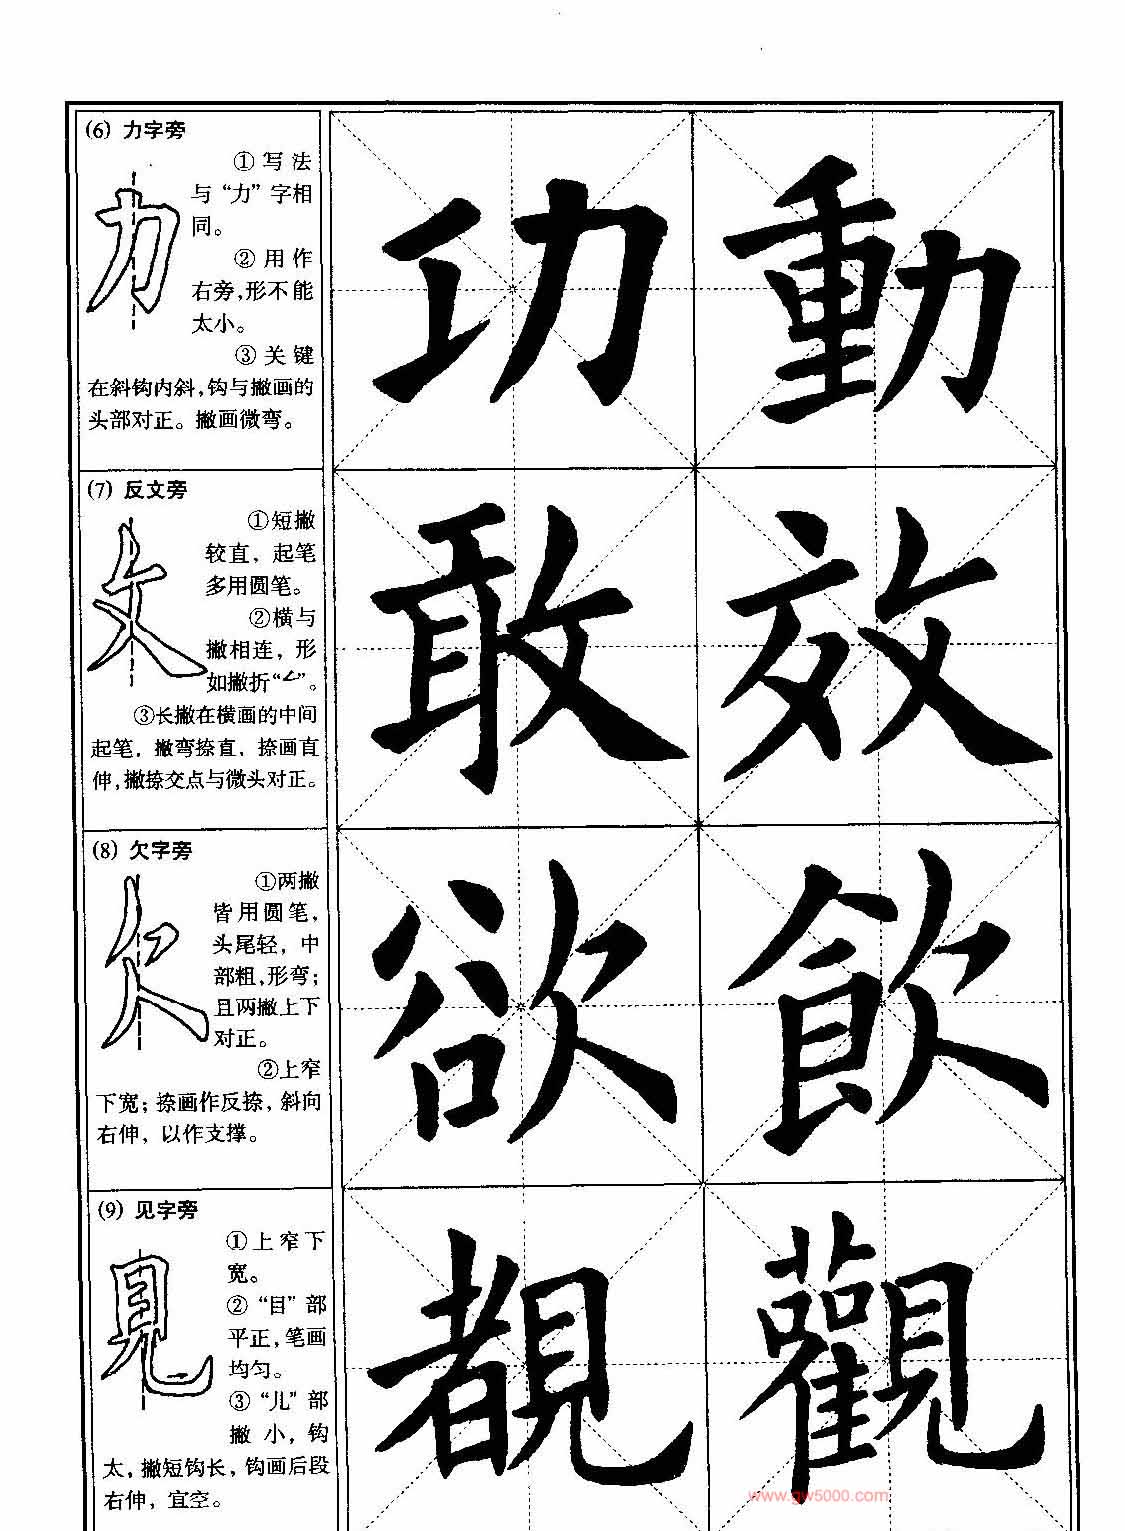 (6) 力字旁
①写法
与“力”字相
同。
②用作
右旁,形不能
太小。
③关键
在斜钩内斜,钩与撇画的
头部对正。撇画微弯。
力
功 動
(7) 反文旁
①短撇
较直，起笔
多用圆笔。
②横与
撇相连，形
如撇折“㇜”。
③长撇在横画的中间
起笔，撇弯捺直，捺画直
伸,撇捺交点与微头对正。
攵
敢 效
(8) 欠字旁
①两撇
皆用圆笔，
头尾轻，中
部粗,形弯；
且两撇上下
对正。
②上窄
下宽；捺画作反捺，斜向
右伸，以作支撑。
欠
欲 飲
(9) 见字旁
①上窄下
宽。
②“目”部
平正,笔画
均匀。
③“儿”部
撇小，钩
大,撇短钩长，钩画后段
右伸，宜空。
見
覩 觀
www.gw5000.com